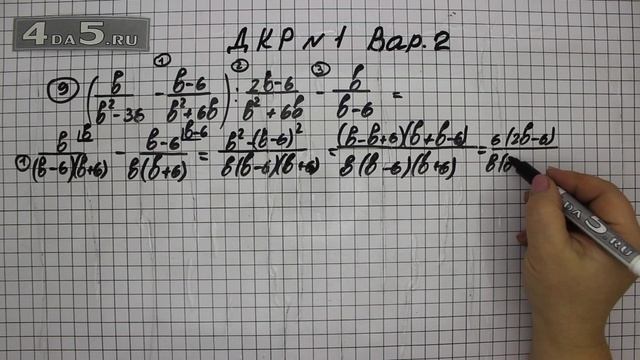 4DA5.RU
ДКР №1 Вар. 2
⑨ (b/(b²-36) ① - (b-6)/(b²+6b)) ② : (2b-6)/(b²+6b) ③ - b/(b-6) =
① b⌊b/((b-6)(b+6)) - b-6⌊b-6/(b(b+6)) = (b²-(b-6)²)/(b(b-6)(b+6)) = ((b-b+6)(b+b-6))/(b(b-6)(b+6)) = 6(2b-6)/(b(b